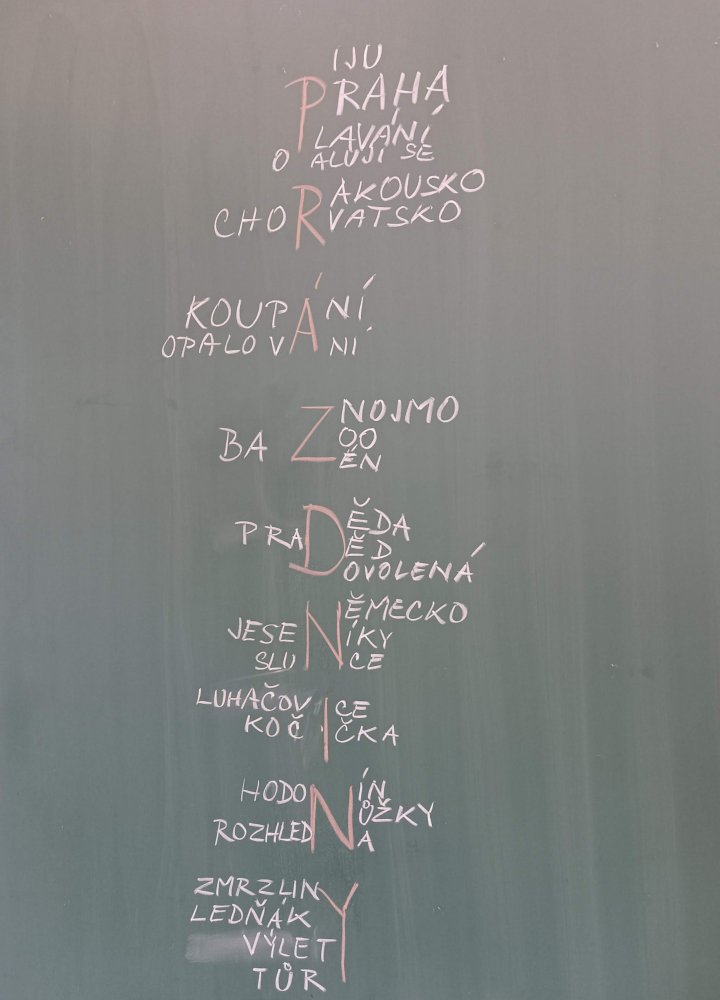 PIJU
PRAHA
PLAVÁNÍ
OPALUJI SE
RAKOUSKO
CHORVATSKO
KOUPÁNÍ
OPALOVÁNÍ
ZNOJMO
ZOO
BAZÉN
DĚDA
PRADĚD
DOVOLENÁ
NĚMECKO
JESENÍKY
SLUNCE
LUHAČOVICE
KOČIČKA
HODONÍN
NŮŽKY
ROZHLEDNA
ZMRZLINY
LEDŇÁKY
VÝLETY
TŮRY